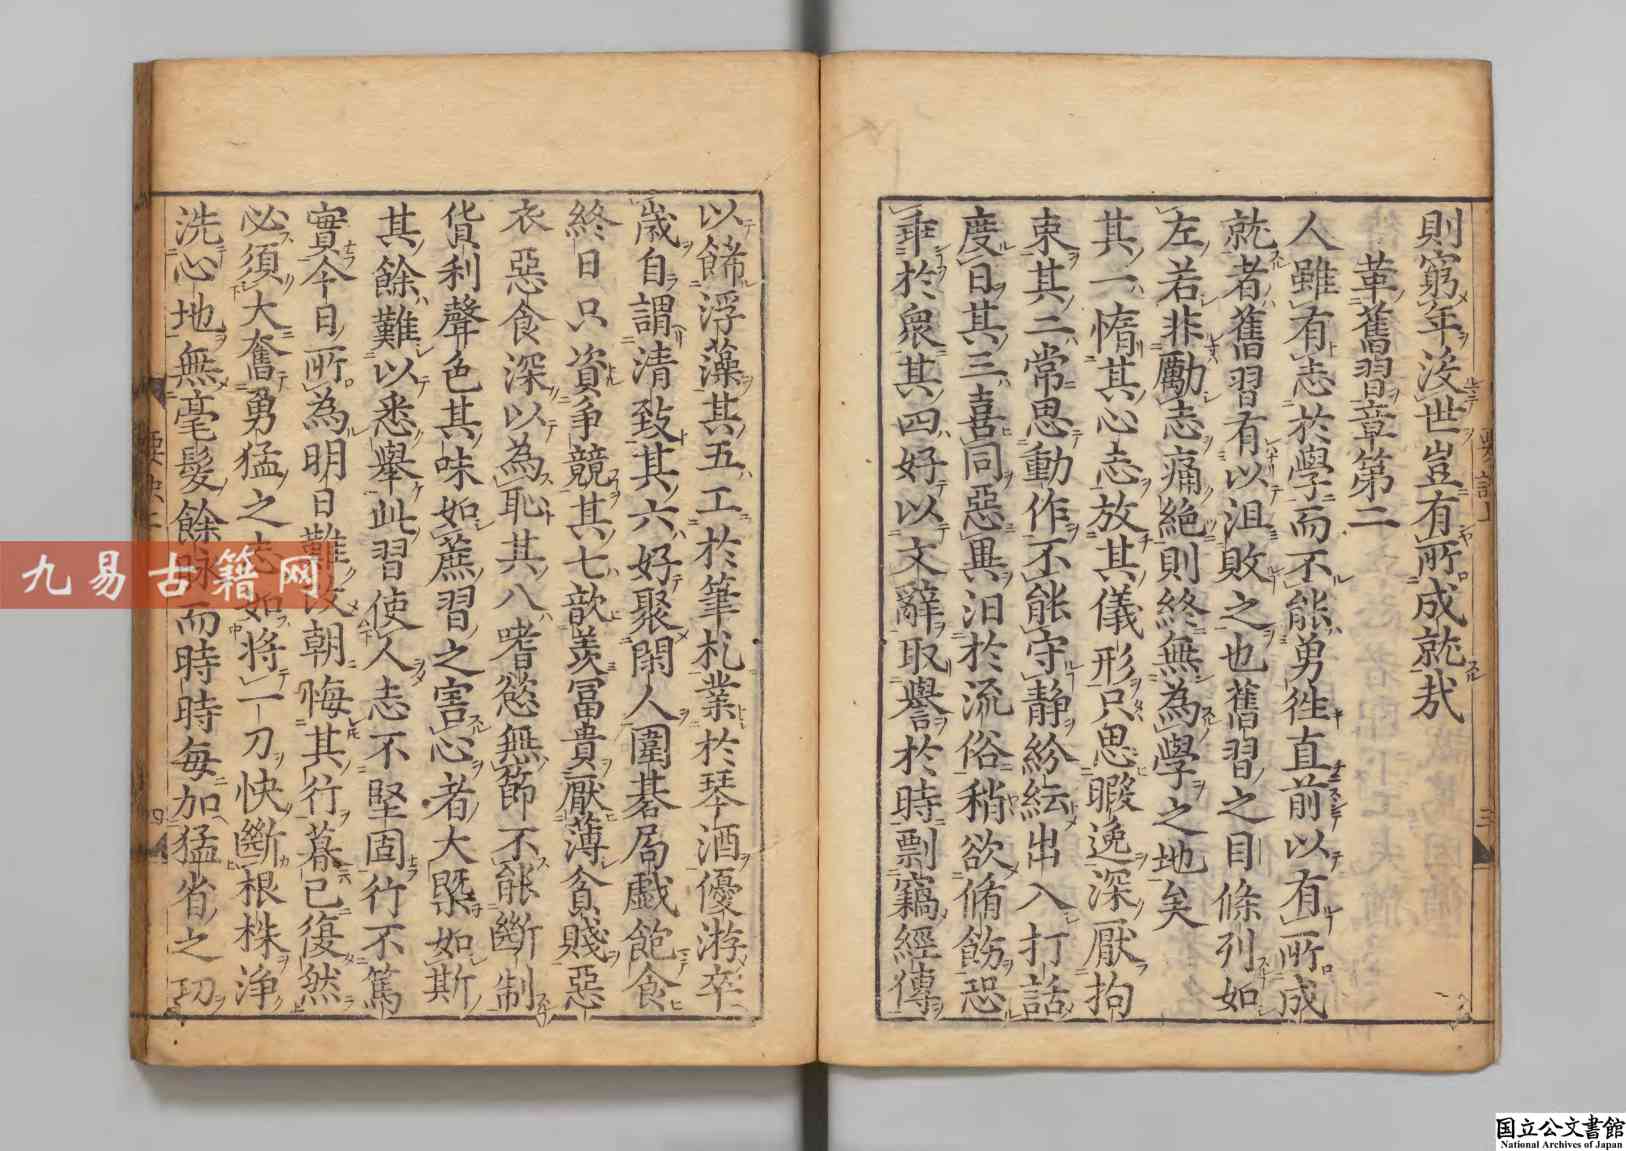 則窮年没世豈有所成就哉
革舊習章第二
人雖有志於學而不能勇徃直前以有所成
就者舊習有以沮敗之也舊習之目條列如
左若非勵志痛絶則終無為學之地矣
其一惰其心志放其儀形只思暇逸深厭拘
束其二常思動作不能守静紛紜出入打話
度日其三喜同惡異汨於流俗稍欲脩飭恐
乖於衆其四好以文辭取譽於時剽竊經傳
以餙浮藻其五工於筆札業於琴酒優游卒
歳自謂清致其六好聚閑人圍碁局戯飽食
終日只資争競其七歆羨冨貴厭薄貧賤惡
衣惡食深以為恥其八嗜慾無節不能斷制
貨利聲色其味如蔗習之害心者大槩如斯
其餘難以悉舉此習使人志不堅固行不篤
實今日所為明日難改朝悔其行暮已復然
必須大奮勇猛之志如將一刀快斷根株浄
洗心地無毫髮餘脉而時時毎加猛省之功
九易古籍网
国立公文書館
National Archives of Japan